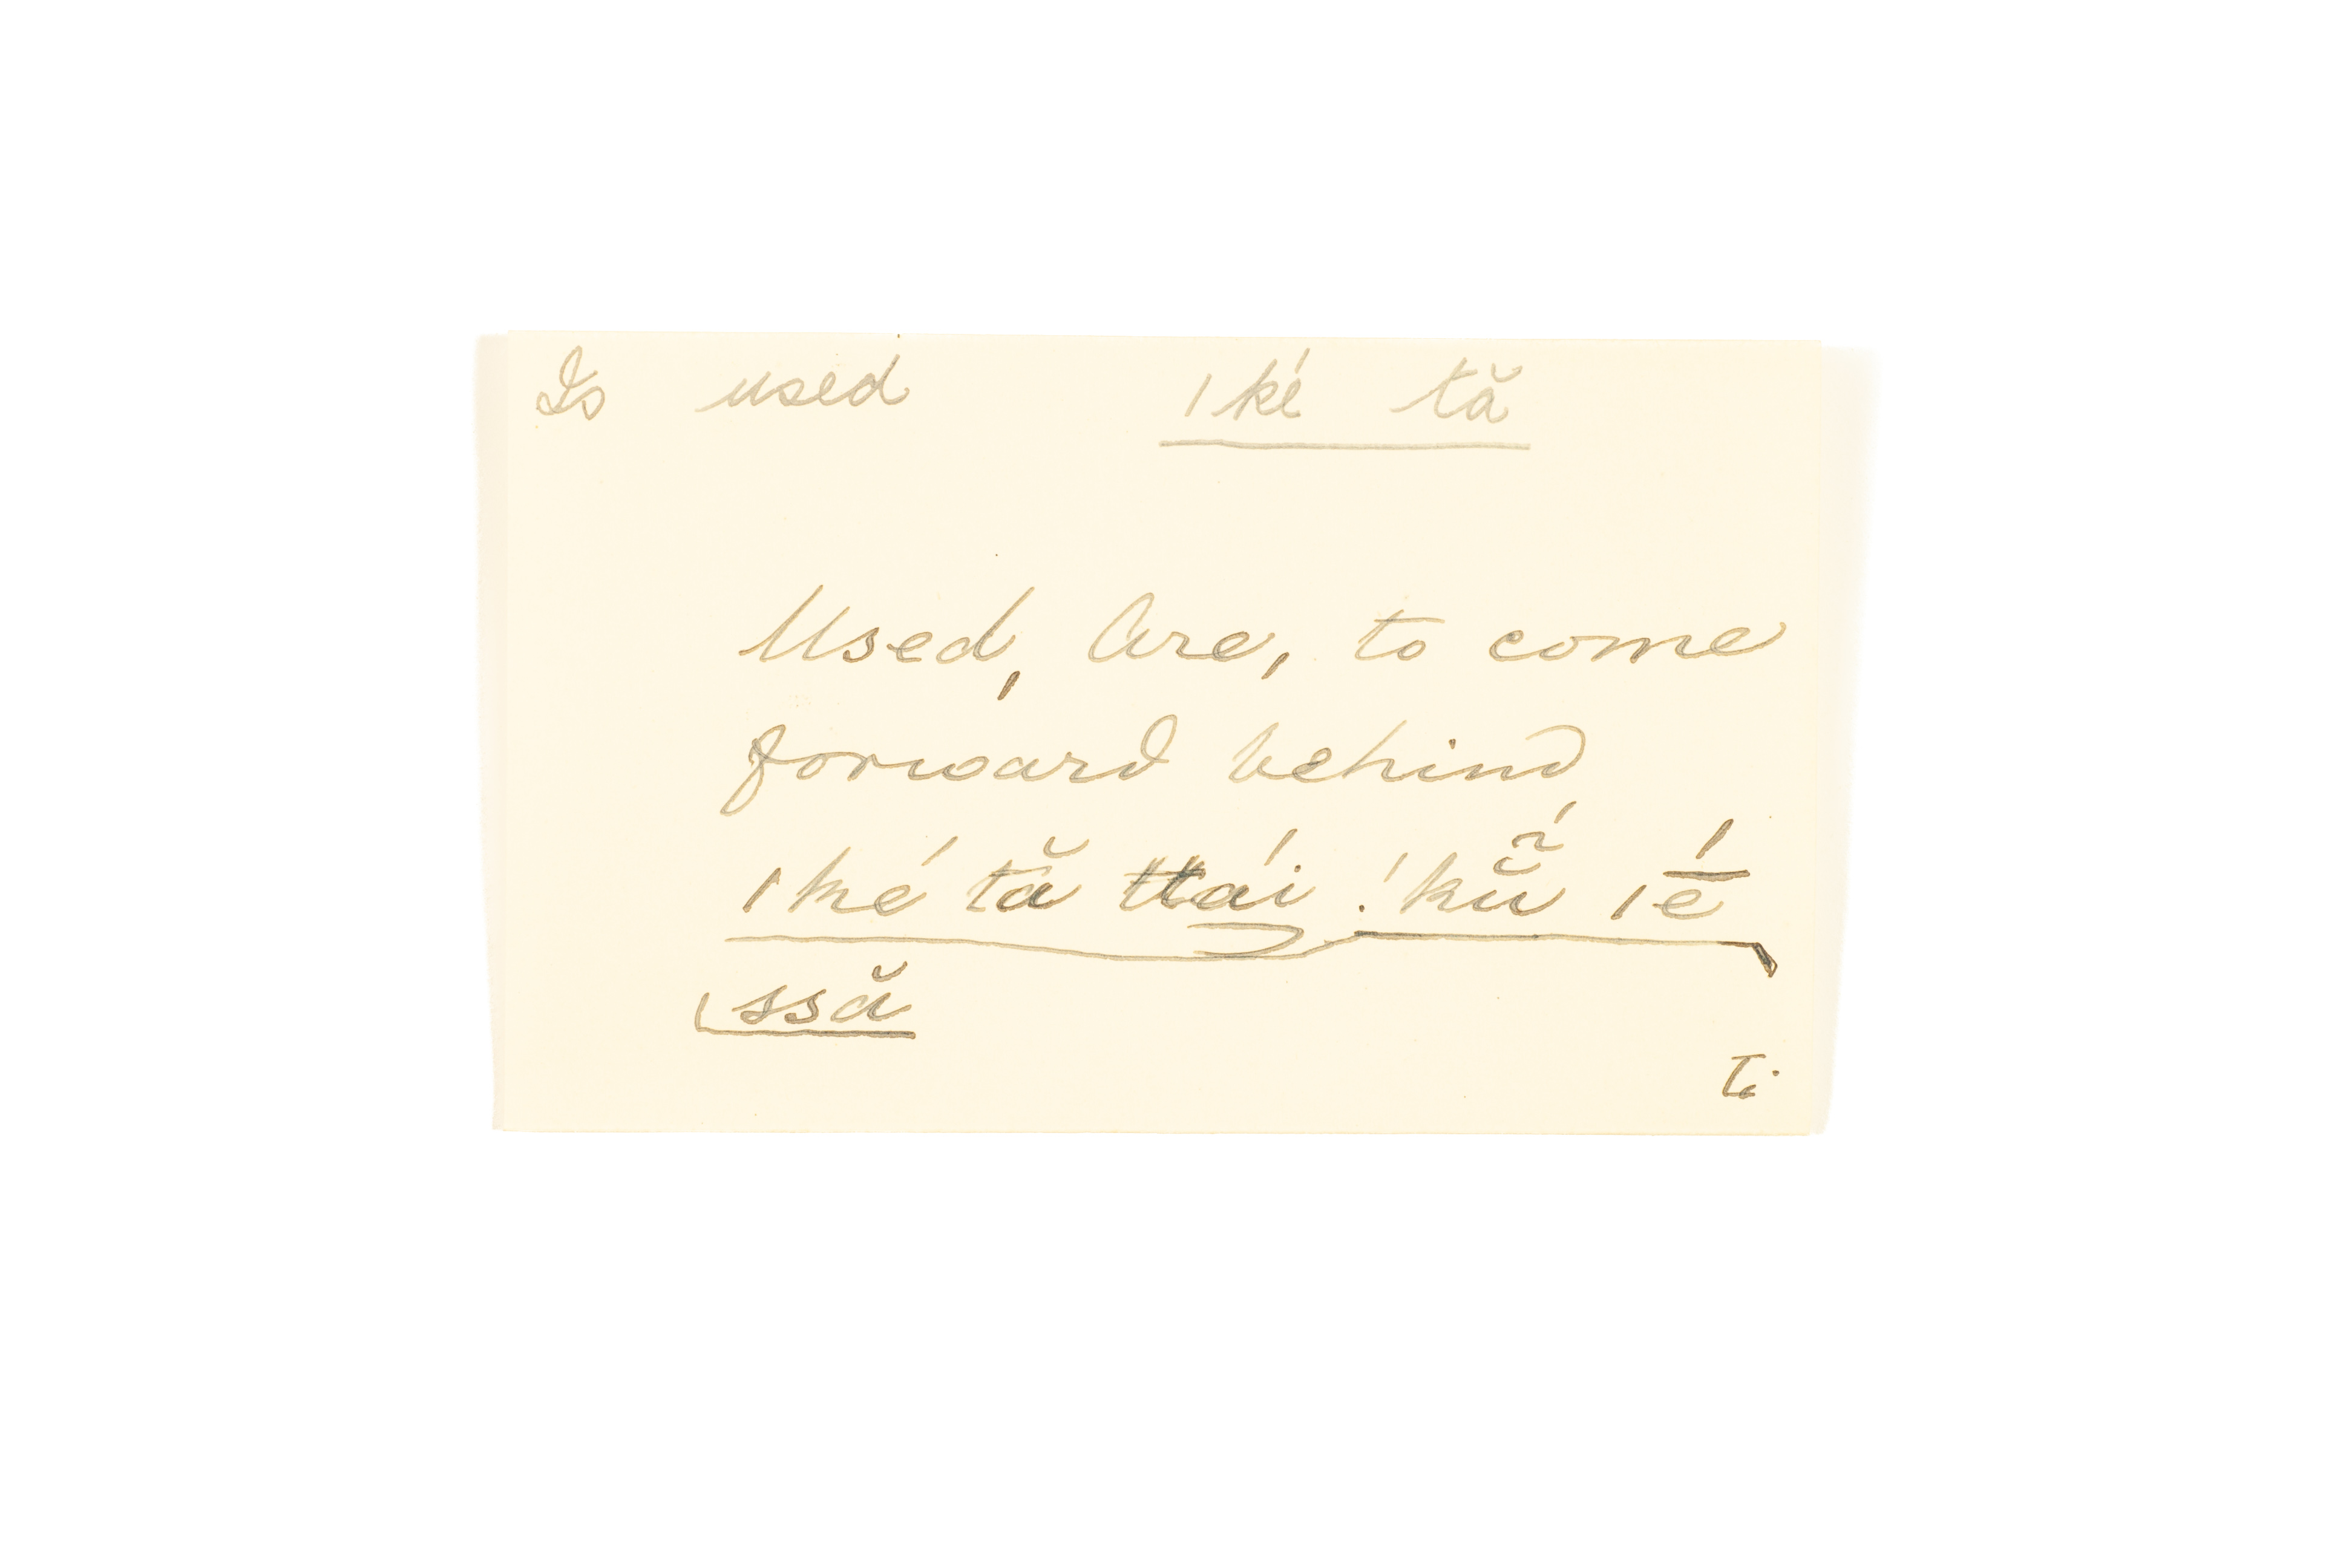 Is used ı ké tă
Used, Are, to come
forward behind
ı ké tă ttái
ssă
T.